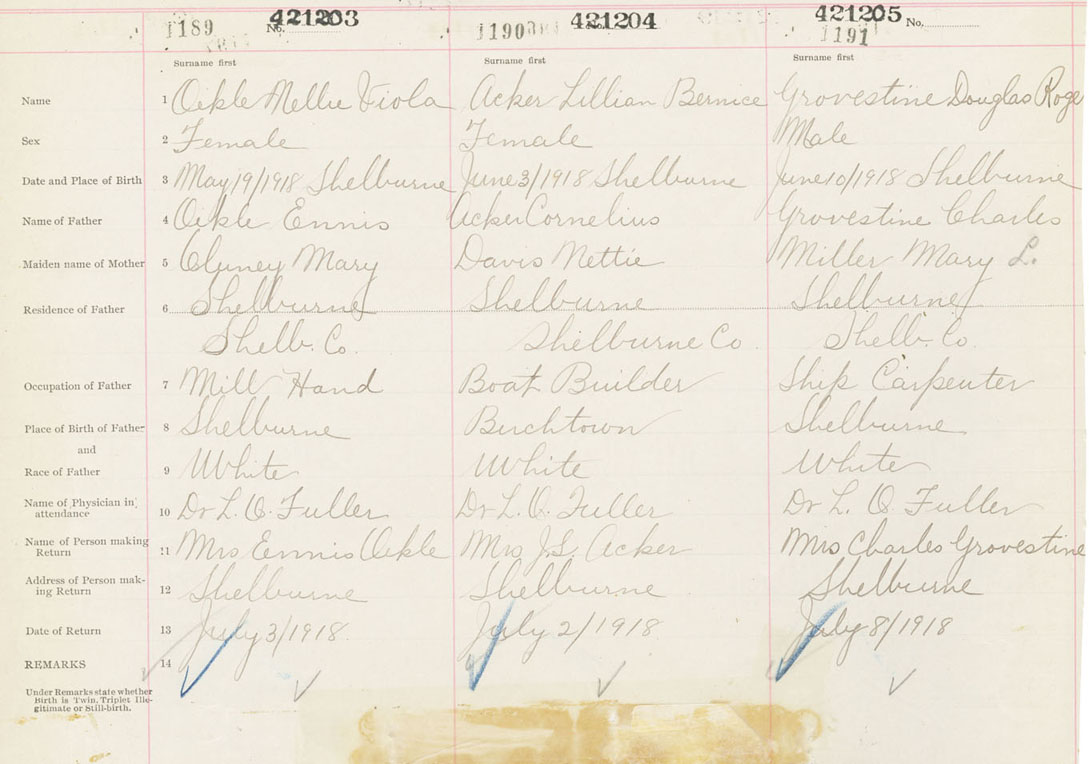 1189 No. 421203 1190 421204 421205 No. 1191
Surname first Surname first Surname first
Name 1 Oikle Mellie Viola Acker Lillian Bernice Grovestine Douglas Roge
Sex 2 Female Female Male
Date and Place of Birth 3 May 19/1918 Shelburne June 3/1918 Shelburne June 10/1918 Shelburne
Name of Father 4 Oikle Ennis Acker Cornelius Grovestine Charles
Maiden name of Mother 5 Mary Davis Nettie Miller Mary L.
Residence of Father 6 Shelburne Shelburne Shelburne
Shelb. Co. Shelburne Co Shelb. Co.
Occupation of Father 7 Mill Hand Boat Builder Ship Carpenter
Place of Birth of Father 8 Shelburne Birchtown Shelburne
and
Race of Father 9 White White White
Name of Physician in
attendance 10 Dr L. O. Fuller Dr L. O. Fuller Dr L. O. Fuller
Name of Person making
Return 11 Mrs Ennis Oikle Mrs J.L. Acker Mrs Charles Grovestine
Address of Person mak-
ing Return 12 Shelburne Shelburne Shelburne
Date of Return 13 July 3/1918. July 2/1918 July 8/1918
REMARKS 14
Under Remarks state whether
Birth is Twin, Triplet Ille-
gitimate or Still-birth.